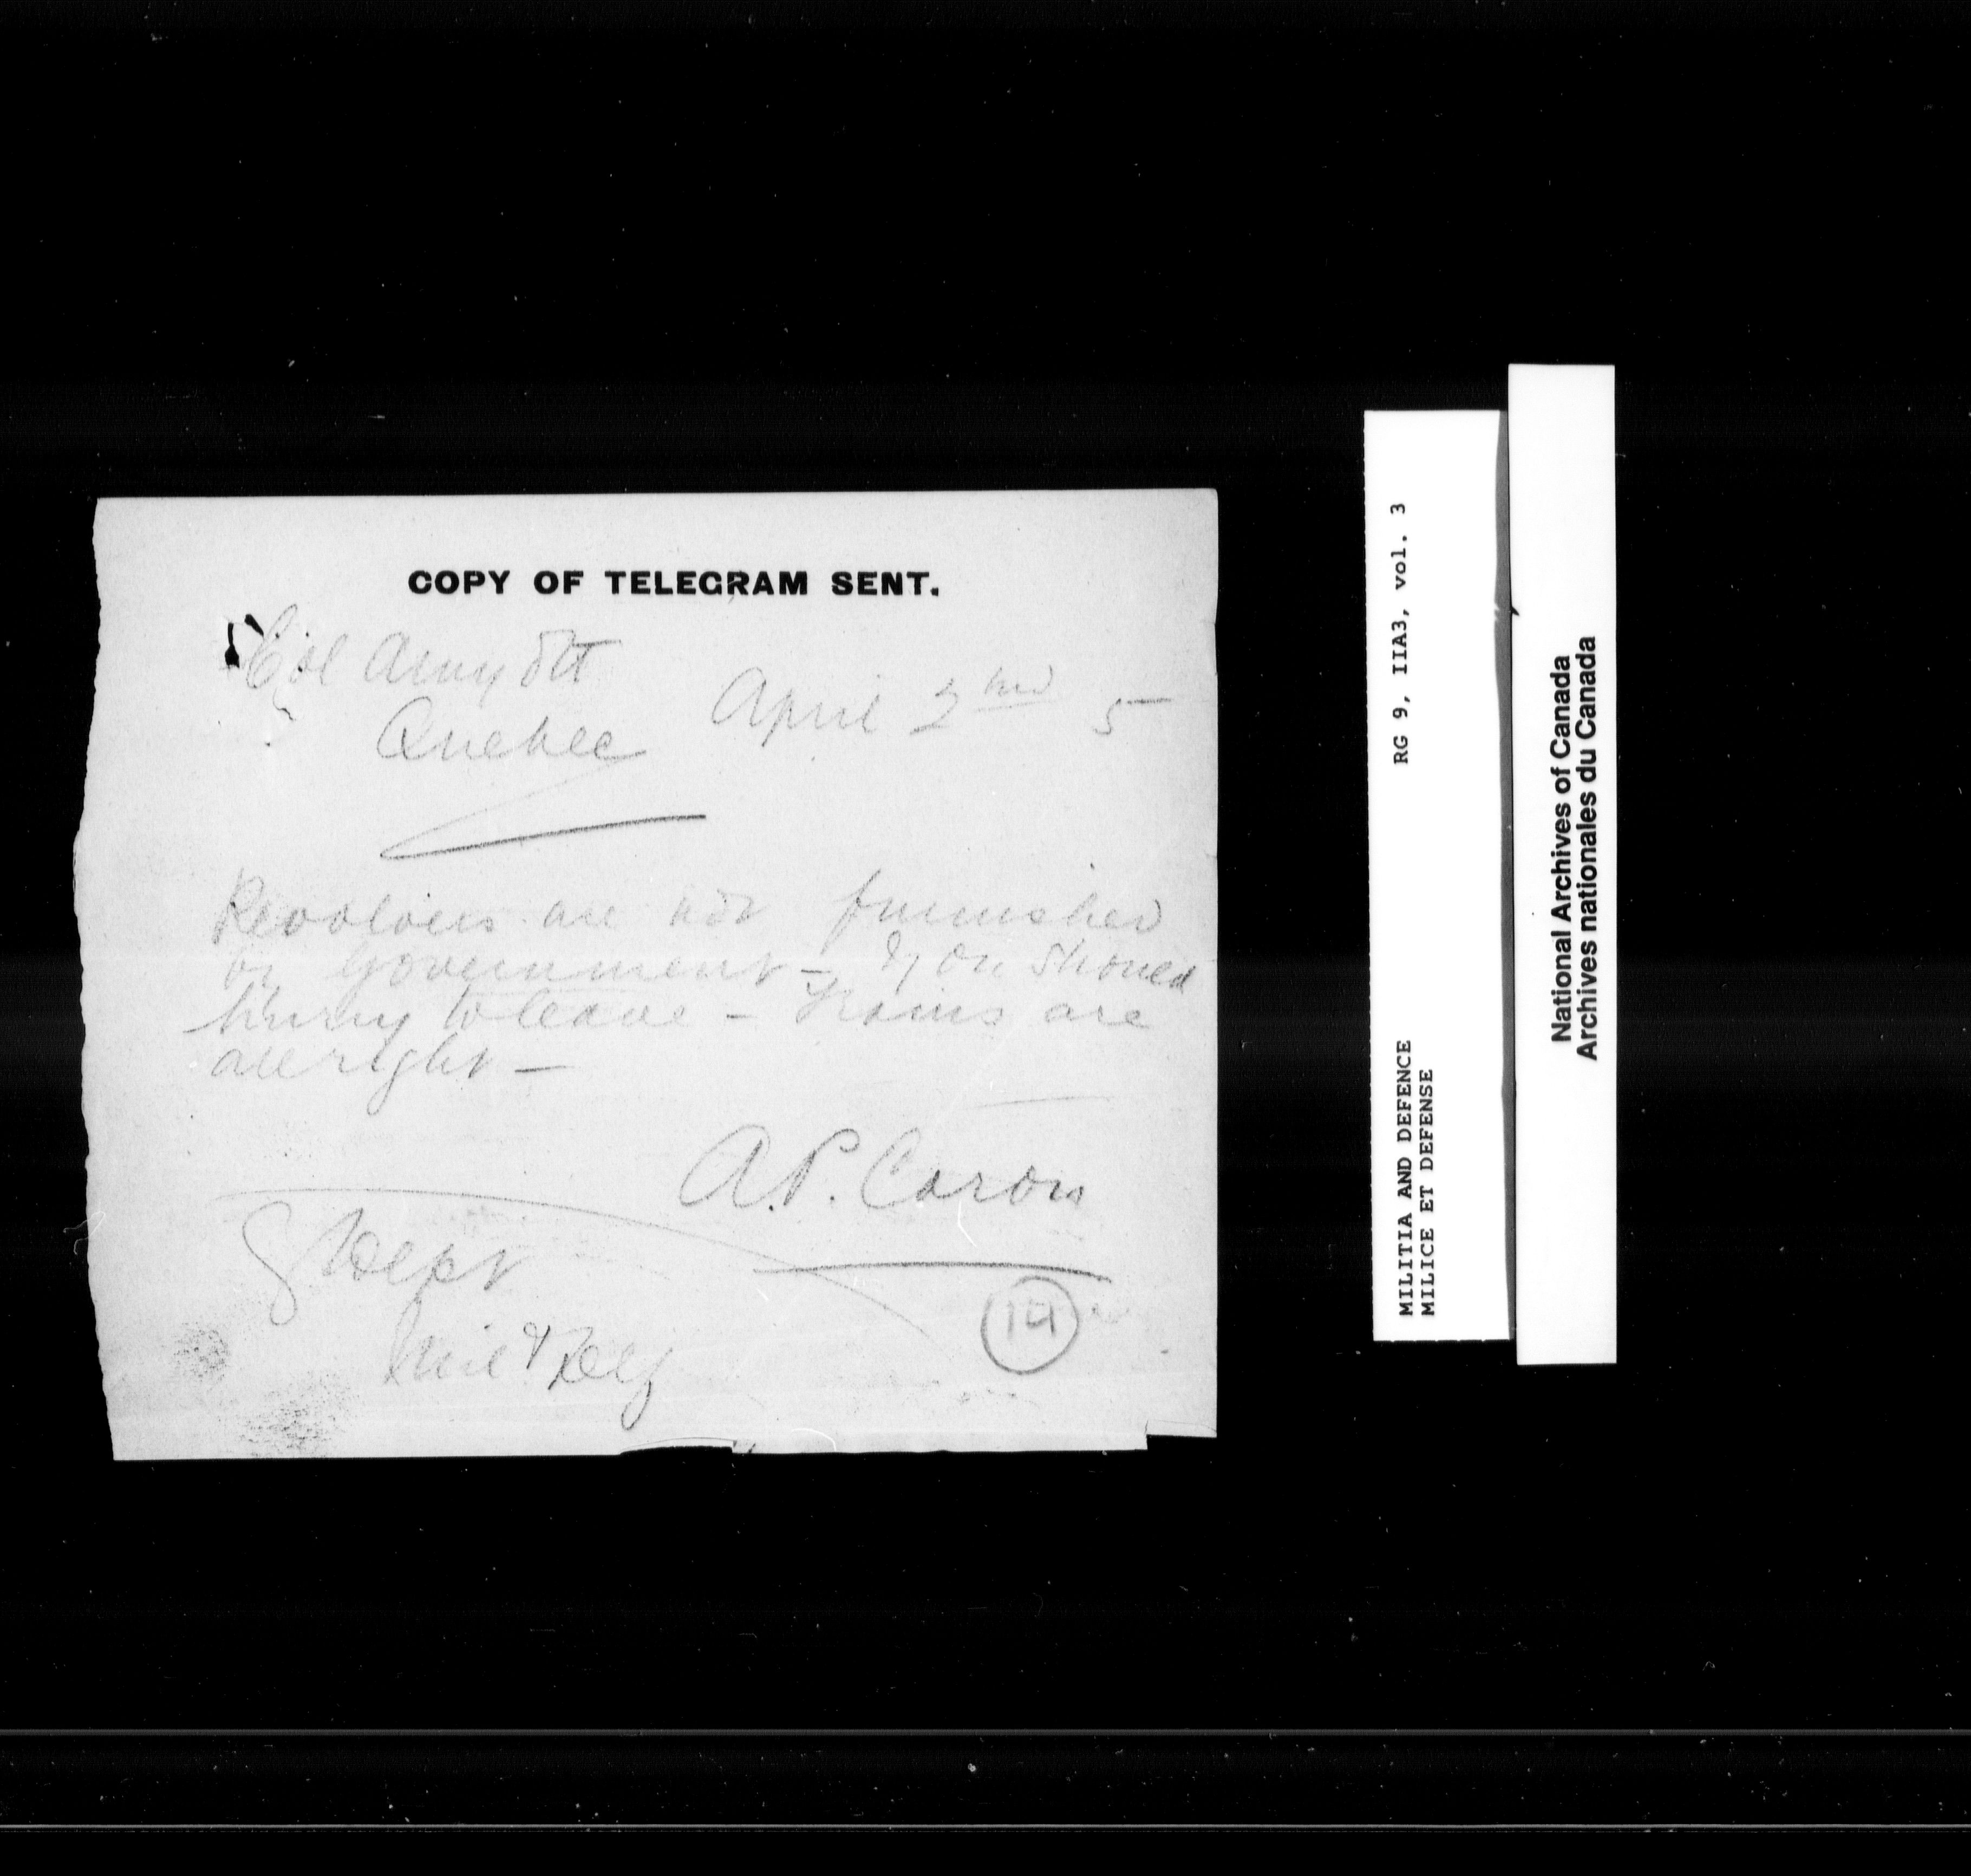 COPY OF TELEGRAM SENT.
Col Amyott
Quebec
April 2nd 5
Revolvers are not furnished
by Government - You should
hurry to leave - Trains are
all right -
A.P. Caron
Dept
Mil & Def
14
RG 9, IIA3, vol. 3
MILITIA AND DEFENCE
MILICE ET DEFENSE
National Archives of Canada
Archives nationales du Canada